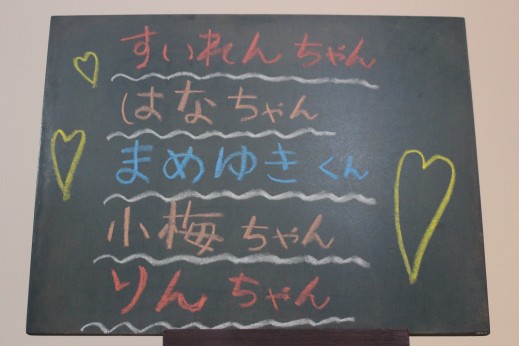 すいれんちゃん
はなちゃん
まめゆきくん
小梅ちゃん
りんちゃん